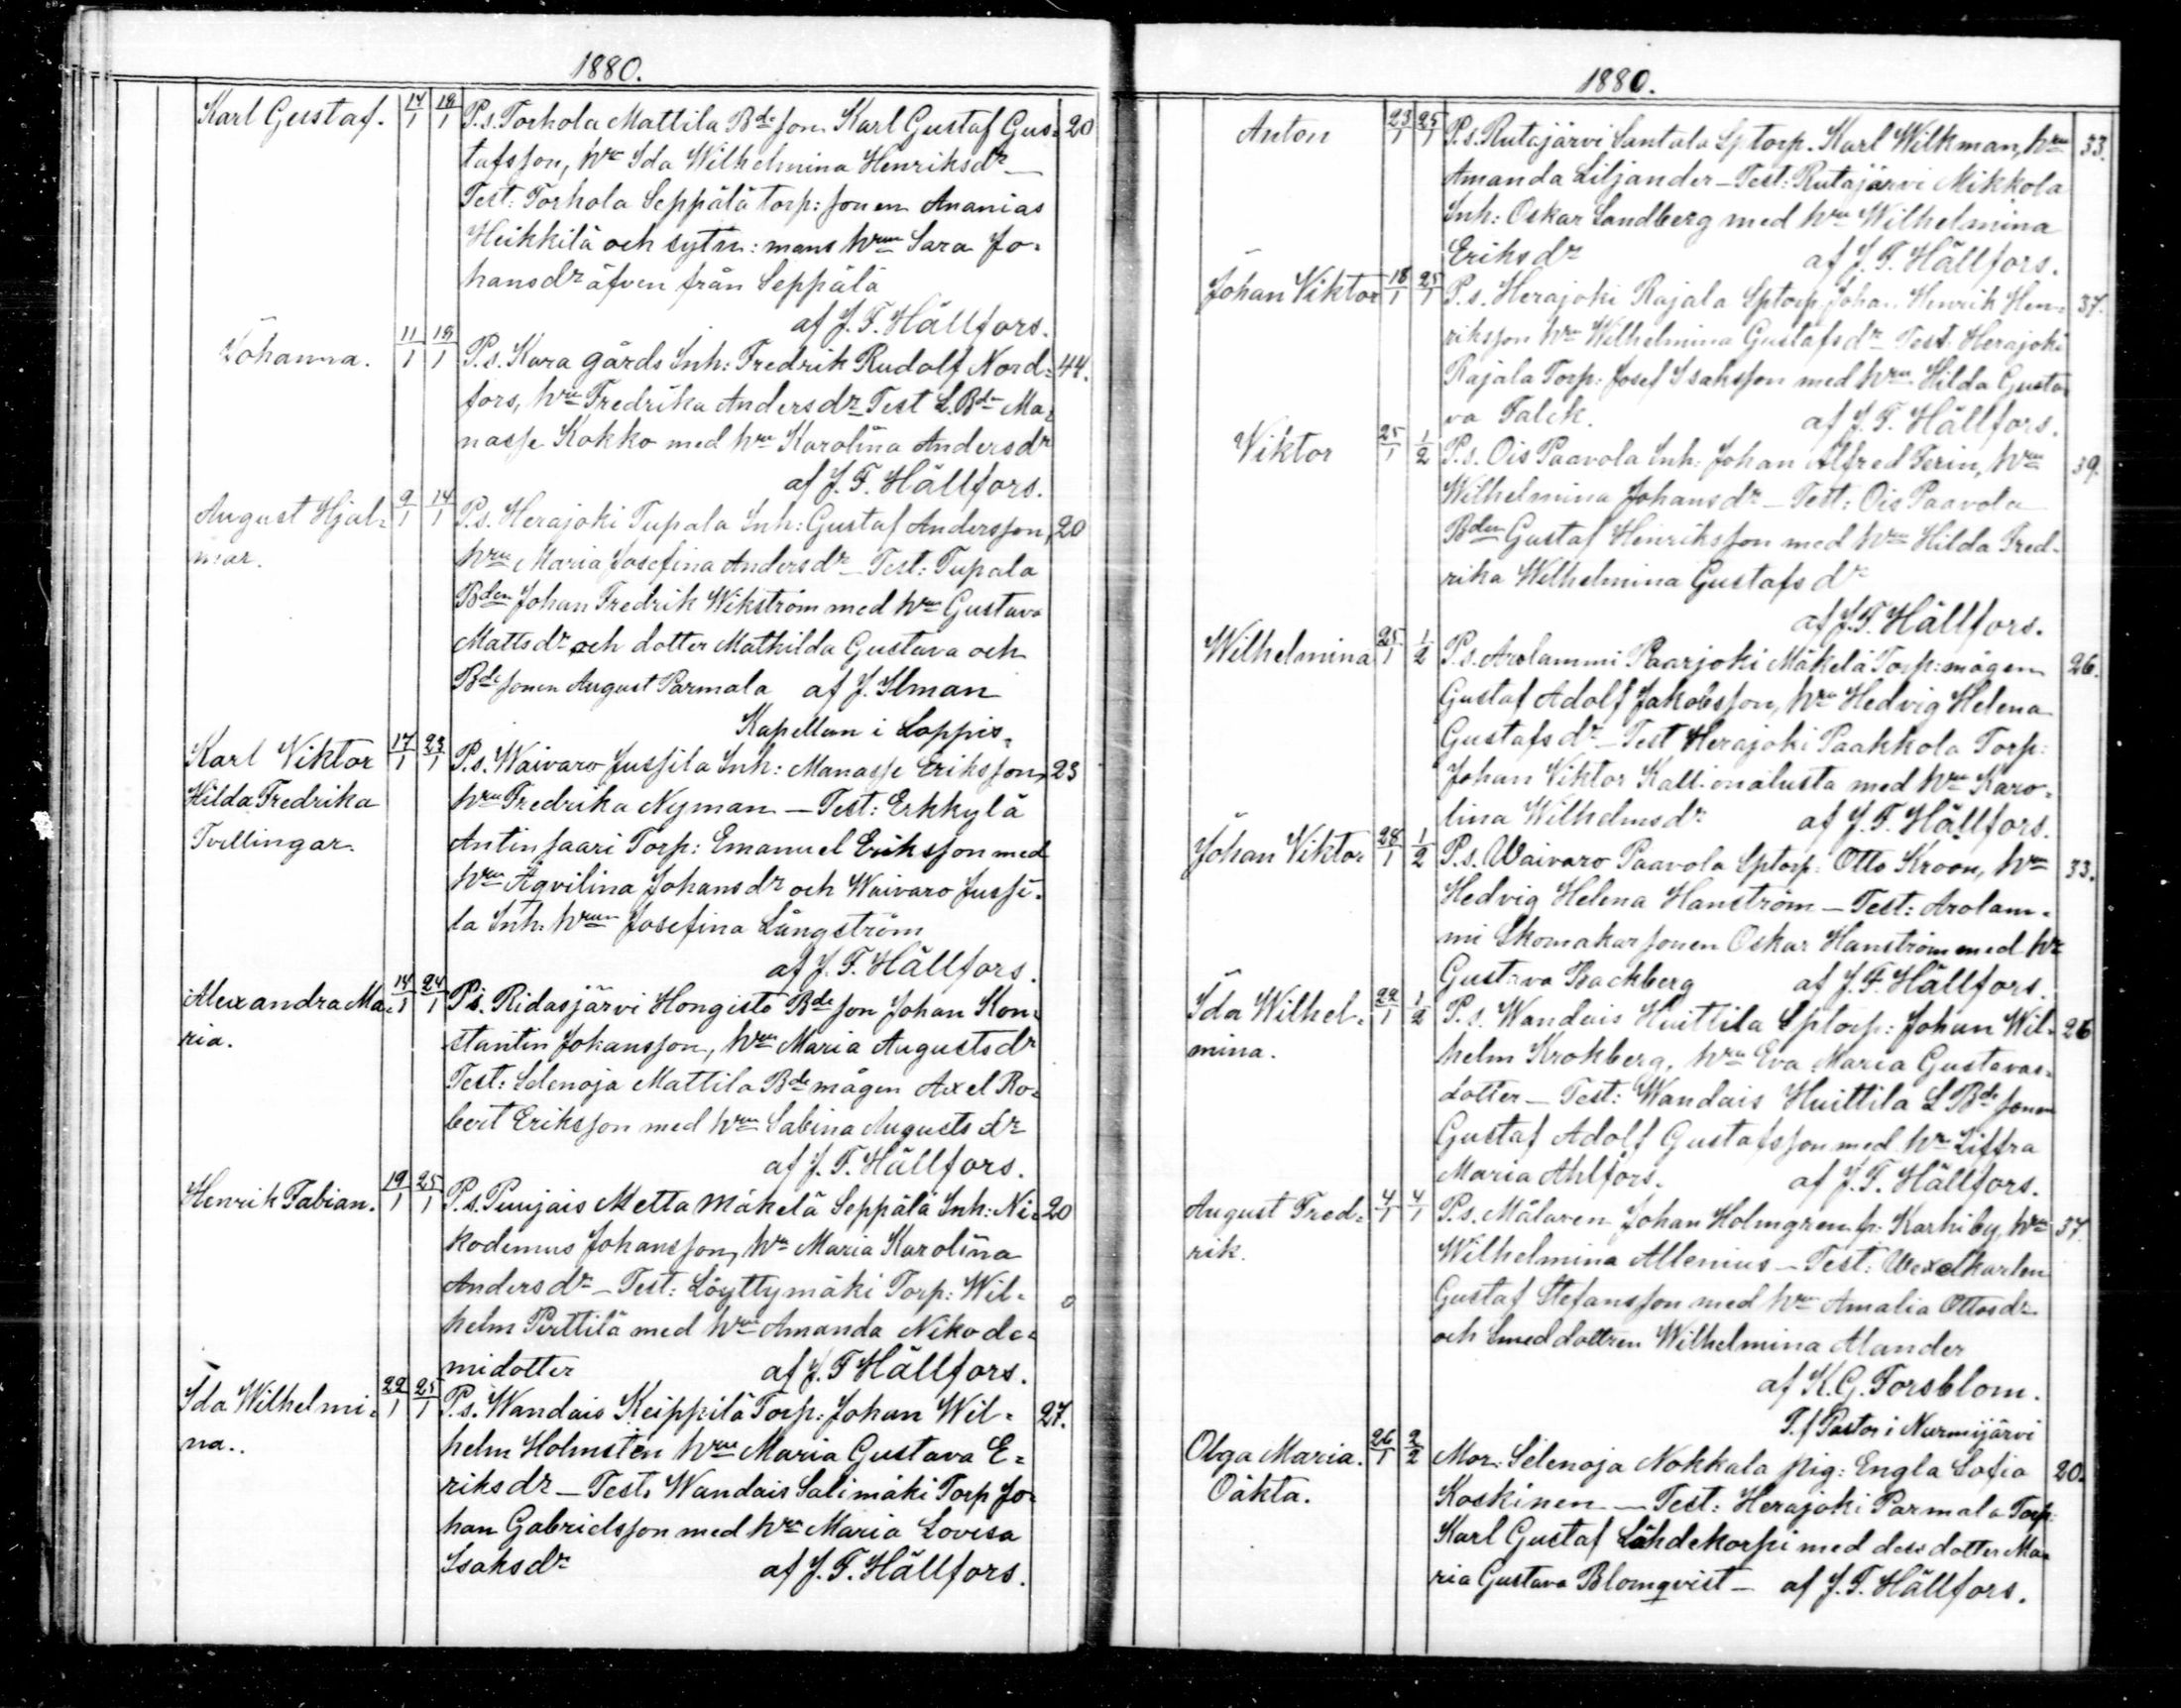 1880.
Karl Gustaf. 14/1 18/1 P.s. Torhola Mattila Bde son Karl Gustaf Gus= 20
tafsson, hru Ida Wilhelmina Henriksdr
Test: Torhola Seppälä torp: sonen Ananias
Heikkilä och sytn: mans hru Sara Jo=
hansdr äfven från Seppälä
af J. F. Hällfors.
Johanna. 11/1 18/1 P.s. Kara gårds Inh: Fredrik Rudolf Nord= 44.
fors, hru Fredrika Andersdr Test L. Bdn Ma=
nasse Kokko med hru Karolina Andersdr
af J. F. Hällfors.
August Hjal= 9/1 14/1 P.s. Herajoki Tupala Inh: Gustaf Andersson, 20
mar. hru Maria Josefina Andersdr – Test: Tupala
Bden Johan Fredrik Wikström med hru Gustava
Mattsdr och dotter Mathilda Gustava och
Bde sonen August Parmala af J. Ilman
Kapellan i Loppis.
Karl Viktor 17/1 23/1 P.s. Waivaro Jussila Inh: Manasse Eriksson, 23
Hilda Fredrika hru Fredrika Nyman – Test: Erkkylä
Tvillingar. Antinsaari Torp: Emanuel Eriksson med
hru Aqvilina Johansdr och Waivaro Jussi=
la Inh. hrun Josefina Långström
af J. F. Hällfors.
Alexandra Ma= 14/1 24/1 P.s. Ridasjärvi Hongisto Bde son Johan Kon=
ria. stantin Johansson, hru Maria Augustsdr
Test: Selenoja Mattila Bde mågen Axel Ro=
bert Eriksson med hru Sabina Augustsdr
af J. F. Hällfors.
Henrik Fabian. 19/1 25/1 P.s. Punjais Metta Mäkelä Seppälä Inh: Ni= 20
kodemus Johansson, hru Maria Karolina
Andersdr – Test: Löyttymäki Torp: Wil=
helm Perttilä med hru Amanda Nikode=
midotter af J. F. Hällfors.
Ida Wilhelmi= 22/1 25/1 P.s. Wandais Keippilä Torp: Johan Wil= 27.
na. helm Holmsten hru Maria Gustava E=
riksdr – Test. Wandais Salimäki Torp Jo=
han Gabrielsson med hru Maria Lovisa
Isaksdr af J. F. Hällfors.
1880.
Anton 23/1 25/1 P.s. Rutajärvi Santala Sptorp. Karl Wilkman, hru 33.
Amanda Liljander – Test: Rutajärvi Mikkola
Inh: Oskar Sandberg med hru Wilhelmina
Eriksdr af J. F. Hällfors.
Johan Viktor 18/1 25/1 P.s. Herajoki Rajala Sptorp Joha. Henrik Hen= 37.
riksson hru Wilhelmina Gustafsdr Test. Herajoki
Rajala Torp: Josef Isaksson med hru Hilda Gusta=
va Falck. af J. F. Hällfors.
Viktor 25/1 1/2 P.s. Ois Paavola Inh: Johan Alfred Terin, hru 39.
Wilhelmina Johansdr – Test: Ois Paavola
Bden Gustaf Henriksson med hru Hilda Fred=
rika Wilhelmina Gustafsdr
af J. F. Hällfors.
Wilhelmina 25/1 1/2 P.s. Arolammi Paarjoki Mäkelä Torp: mågen 26.
Gustaf Adolf Jakobsson, hru Hedvig Helena
Gustafsdr – Test Herajoki Paakkola Torp:
Johan Viktor Kallionalusta med hru Karo=
lina Wilhelmsdr af J. F. Hällfors.
Johan Viktor 28/1 1/2 P.s. Waivaro Paavola Sptorp: Otto Kroon, hru 33.
Hedvig Helena Hanström – Test: Arolam=
mi Skomakar sonen Oskar Hanström med hr
Gustava Backberg af J. F. Hällfors.
Ida Wilhel= 22/1 1/2 P.s. Wandais Huittila Sptorp: Johan Wil= 26
mina. helm Krokberg, hru Eva Maria Gustavas=
dotter – Test: Wandais Huittila L Bde sonen
Gustaf Adolf Gustafsson med hru Ziffra
Maria Ahlfors. af J. F. Hällfors.
August Fred= 4/1 4/1 P.s. Målaren Johan Holmgren fr. Karhiby, hru 37.
rik. Wilhelmina Allenius – Test: Wexelkarlen
Gustaf Stefansson med hru Amalia Ottosdr
och Smeddottren Wilhelmina Alander
af K. G. Forsblom.
T.f. Pastor i Nurmijärvi
Olga Maria. 26/1 2/2 Mor: Selenoja Nokkala pig: Engla Sofia 20.
Oäkta. Koskinen – Test: Herajoki Parmala Torp:
Karl Gustaf Lähdekorpi med dess dotter Ma=
ria Gustava Blomqvist – af J. F. Hällfors.